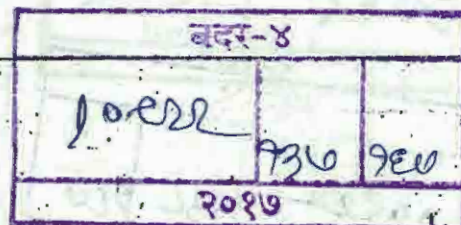 बदर-४
१०९२२ १३७
२०१७